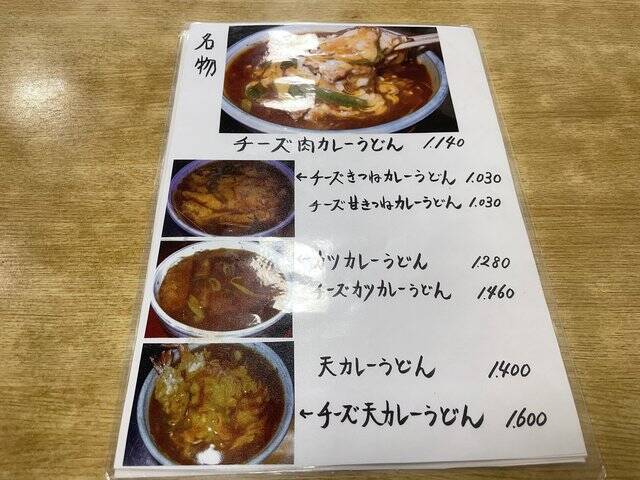 名物
チーズ肉カレーうどん 1.140
←チーズきつねカレーうどん 1.030
チーズ甘きつねカレーうどん 1.030
←カツカレーうどん 1.280
チーズカツカレーうどん 1.460
天カレーうどん 1.400
←チーズ天カレーうどん 1.600